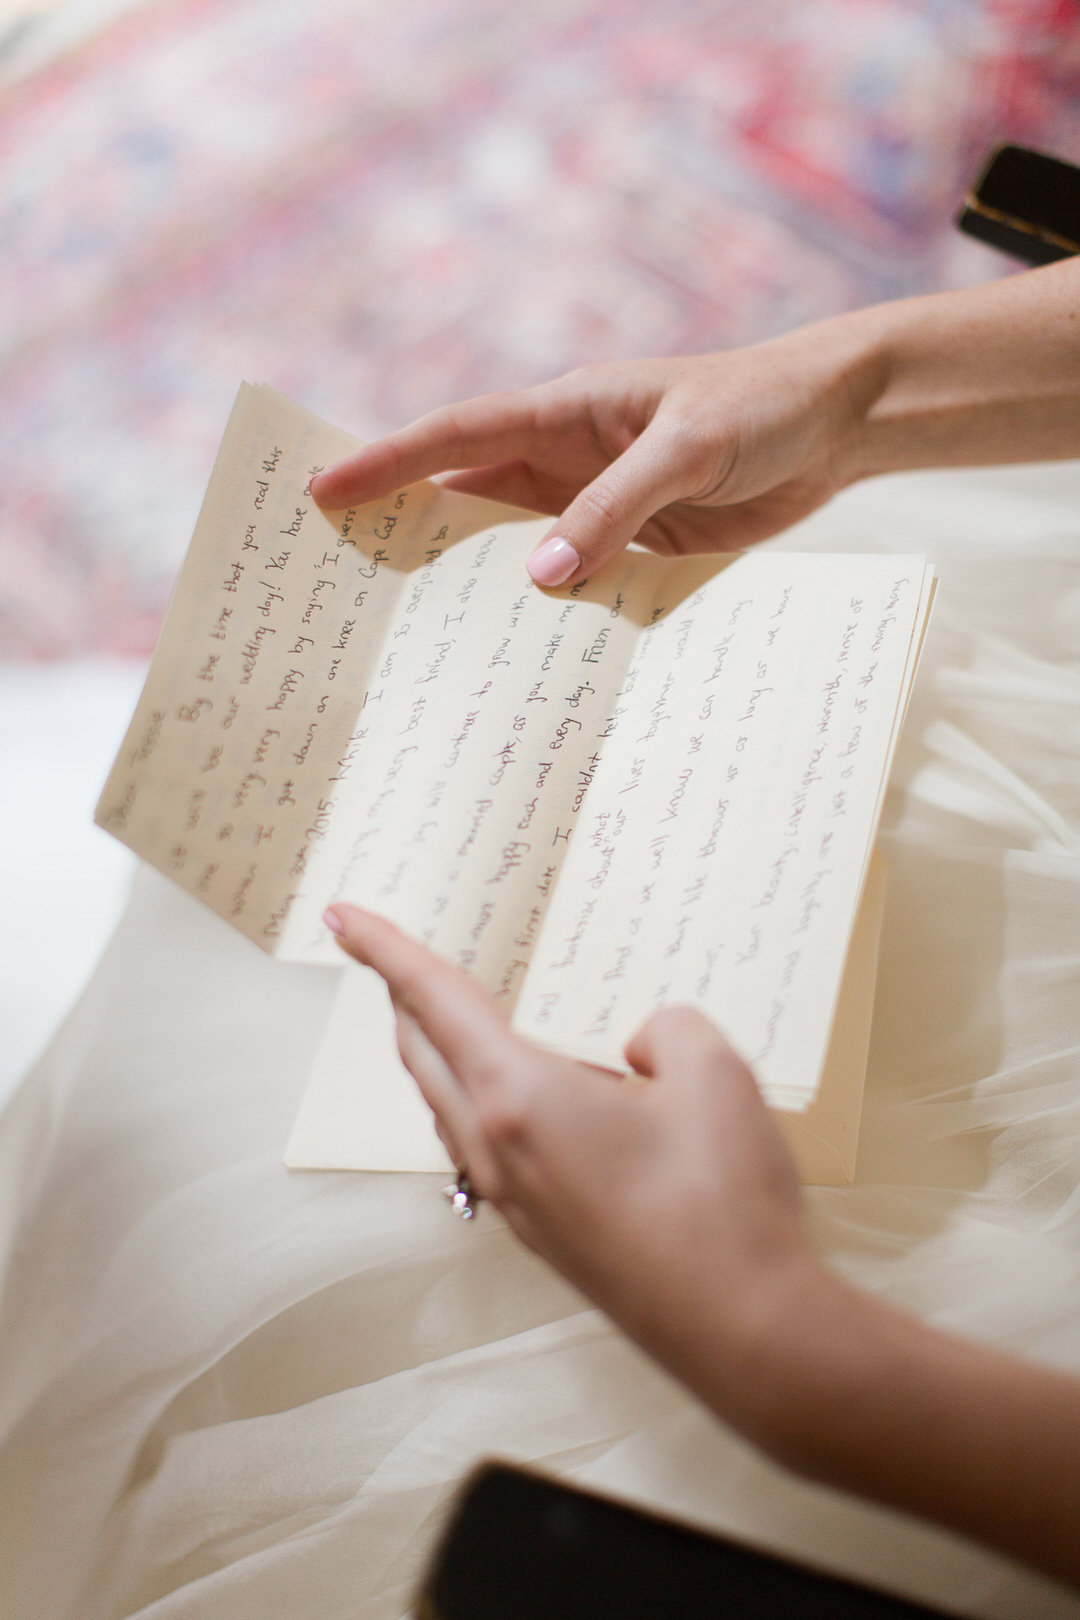 Dear Jesse
By the time that you read this
it will be our wedding day! You have made
me so very very happy by saying "I guess
when I got down on one knee on Cape Cod on
May 30th, 2015. While I am so overjoyed to
be my very best friend, I also know
this joy will continue to grow with
as a married couple, as you make me
and more happy each and every day. From our
very first date I couldn't help but imagine
and fantasize about what our lives together would be
like. And as we well know we can handle any
that life throws us as long as we have
other.
Your beauty, intelligence, warmth, sense of
humor and loyalty are just a few of the many, many